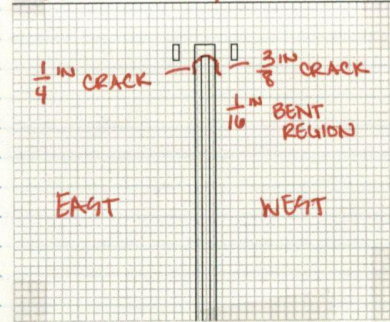 1/4 IN CRACK
3/8 IN CRACK
1/16 IN BENT
REGION
EAST
WEST